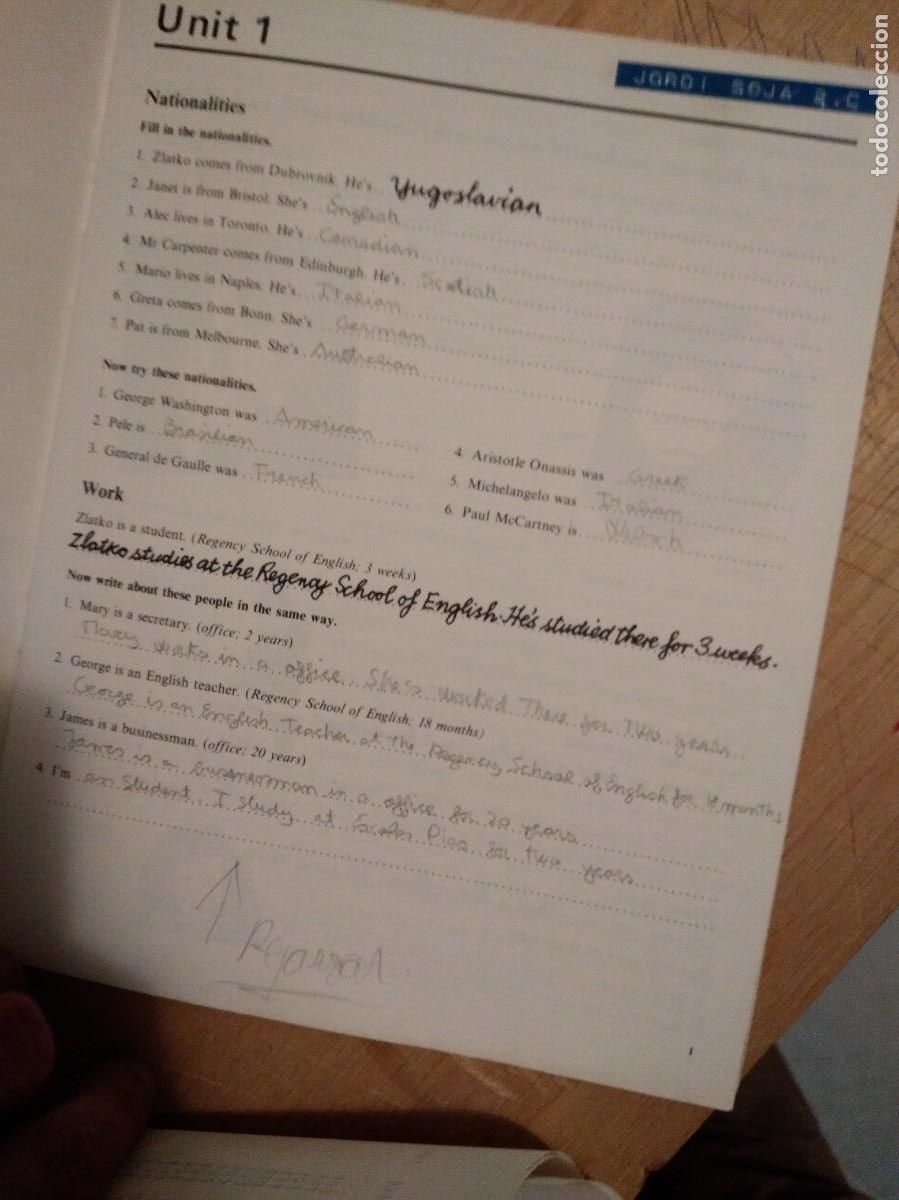 Unit 1
JORDI BOJA
Nationalities
Fill in the nationalities.
1. Zlatko comes from Dubrovnik. He's Yugoslavian
2. Janet is from Bristol. She's English
3. Alec lives in Toronto. He's Canadian
4. Mr Carpenter comes from Edinburgh. He's Scotish
5. Mario lives in Naples. He's Italian
6. Greta comes from Bonn. She's German
7. Pat is from Melbourne. She's Australian
Now try these nationalities.
1. George Washington was American
2. Pele is Brasilian
3. General de Gaulle was French
4. Aristotle Onassis was Greek
5. Michelangelo was Italian
6. Paul McCartney is
Work
Zlatko is a student. (Regency School of English; 3 weeks)
Zlatko studies at the Regency School of English. He's studied there for 3 weeks.
Now write about these people in the same way.
1. Mary is a secretary. (office; 2 years)
Mary works in a office. She's worked There for Two years
2. George is an English teacher. (Regency School of English; 18 months)
George is an English Teacher at the Regency School of English for months
3. James is a businessman. (office; 20 years)
James is a in a office for 20 years
4. I'm an Student. I study at Escoles Pies for two years
1
todocoleccion